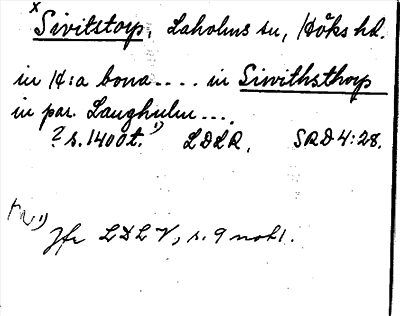 x
Sivitstorp, Laholms sn, Höks hd.
in H:a bona.... in Siwithsthorp
in par. Laugholm....
? s. 1400 t. 1) LDLR, SRD 4:28.
1) Jfr LDLV, s. 9 not 1.